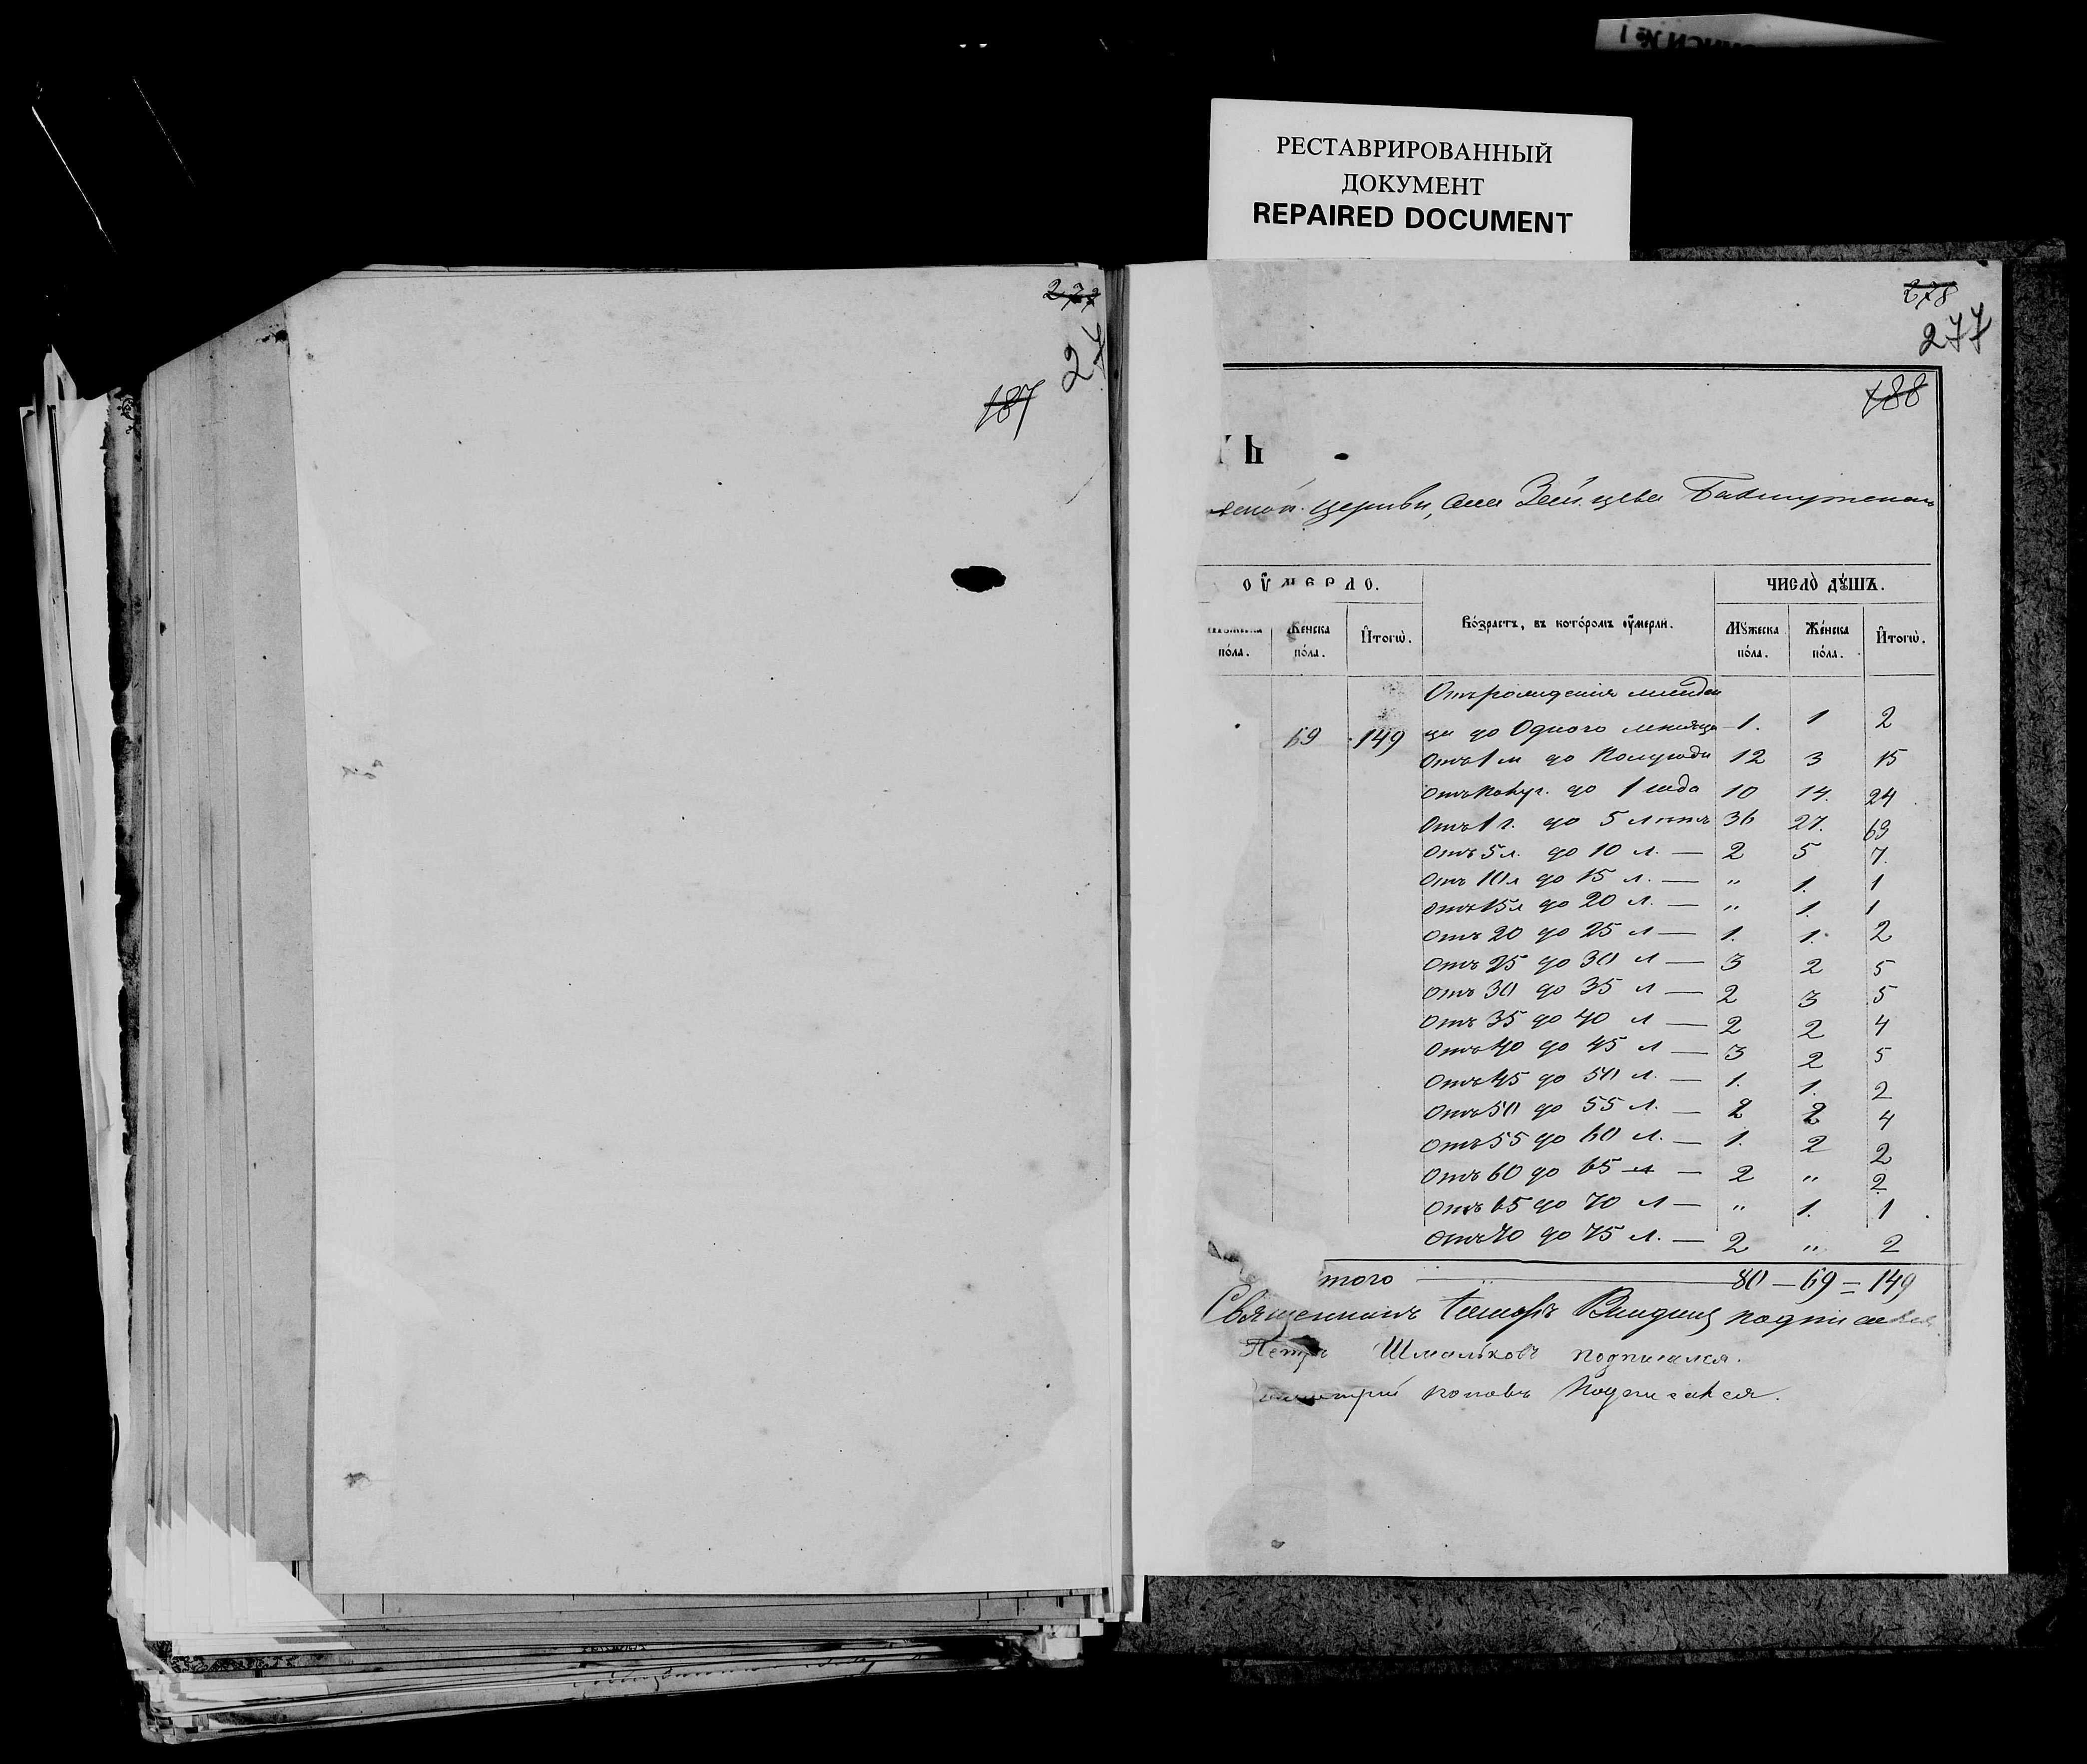 РЕСТАВРИРОВАННЫЙ
ДОКУМЕНТ
REPAIRED DOCUMENT
277
187
278
277
188
Ъ
церкви, села Зайцева Бахмутскаго
оумерло.
Мужеска пола.
Женска пола.
Итогѡ.
Возрастъ, въ которомъ оумерли.
число душъ.
Мужеска пола.
Женска пола.
Итогѡ.
69 149
Отъ рожденія младен
ца до Одного мѣсяца 1. 1 2
Отъ 1 м до Полугода 12 3 15
Отъ Полуг. до 1 года 10 14. 24
Отъ 1 г. до 5 лѣтъ 36 27. 63
Отъ 5 л. до 10 л. — 2 5 7.
Отъ 10 л до 15 л. — " 1. 1
Отъ 15 л до 20 л. — " 1. 1
Отъ 20 до 25 л — 1. 1. 2
Отъ 25 до 30 л — 3 2 5
Отъ 30 до 35 л — 2 3 5
Отъ 35 до 40 л — 2 2 4
Отъ 40 до 45 л — 3 2 5
Отъ 45 до 50 л. — 1. 1. 2
Отъ 50 до 55 л. — 2 2 4
Отъ 55 до 60 л. — 1. 2 2
Отъ 60 до 65 л — 2 " 2
Отъ 65 до 70 л — " 1. 1
Отъ 70 до 75 л. — 2 " 2
того — 80 — 69 = 149
Священникъ подписался
Петръ Шмальковъ подписался.
Поповъ Подписался.